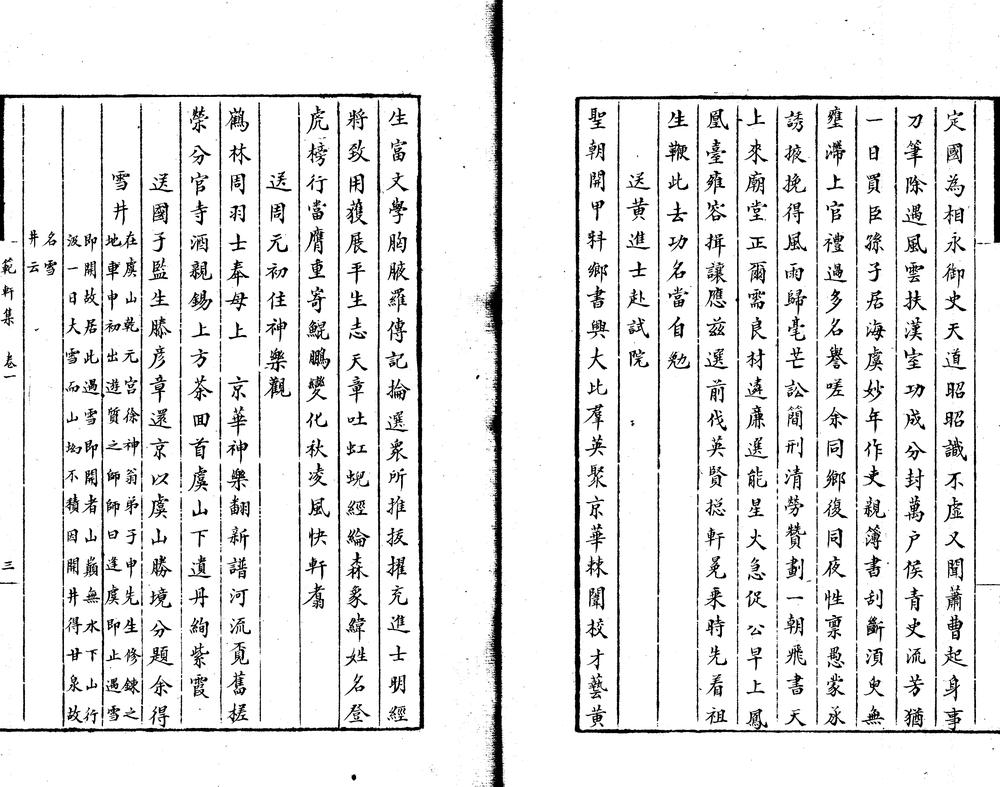 定國為相永御史天道昭昭識不虛又聞蕭曹起身事
刀筆除遇風雲扶漢室功成分封萬户侯青史流芳猶
一日買臣孫子居海虞妙年作吏親簿書刮斷湏臾無
壅滯上官禮遇多名譽嗟余同鄉復同夜性禀愚蒙承
誘掖挽得風雨歸毫芒訟簡刑清勞贊劃一朝飛書天
上來廟堂正爾需良材遴廉選能星火急促公早上鳳
凰臺雍容揖讓應兹選前伐英賢揔軒冕来時先着祖
生鞭此去功名當自勉
送黄進士赴試院
聖朝開甲科鄉書興大比羣英聚京華棘闈校才藝黄
生富文學胸腋羅傳記掄選衆所推拔擢充進士明經
將致用獲展平生志天章吐虹蜺經綸森象緯姓名登
虎榜行當膺重寄鯤鵬變化秋凌風快軒翥
送周元初住神樂觀
鶴林周羽士奉母上 京華神樂翻新譜河流覔舊槎
榮分官寺酒親錫上方茶回首虞山下遺丹絢紫霞
送國子監生滕彦章還京以虞山勝境分題余得
雪井
在虞山乾元宫徐神翁弟子申先生修鍊之
地車中初出遊質之師師曰逢虞即止遇雪
即開故居此遇雪即開者山巔無水下山行
汲一日大雪而山坳不積因開井得甘泉故
名雪
井云
範軒集 卷一 三